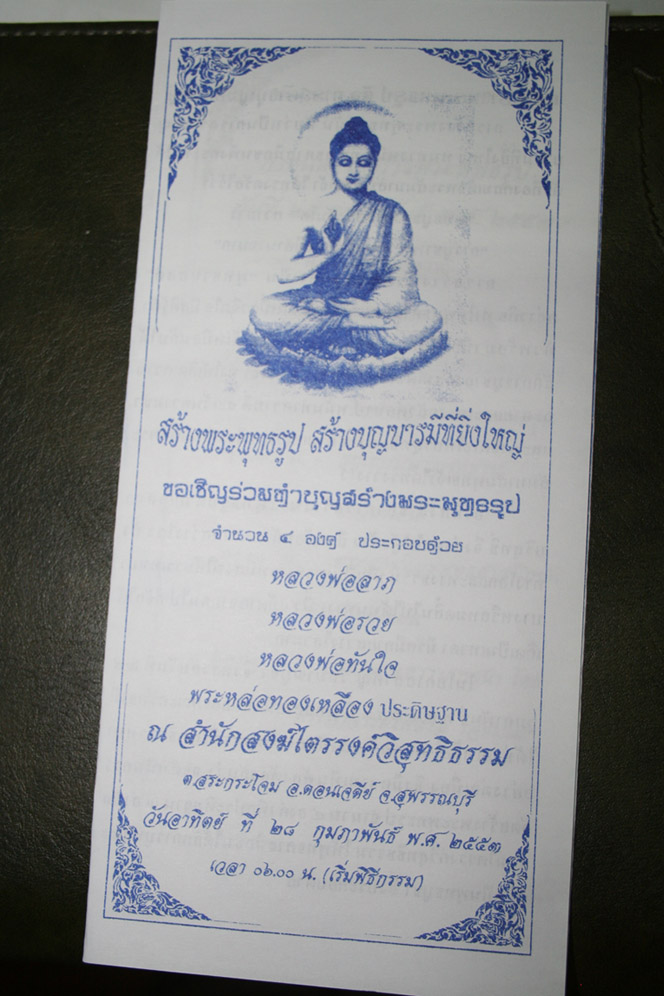 สร้างพระพุทธรูป สร้างบุญบารมีที่ยิ่งใหญ่
ขอเชิญร่วมทำบุญสร้างพระพุทธรูป
จำนวน ๔ องค์ ประกอบด้วย
หลวงพ่อลาภ
หลวงพ่อรวย
หลวงพ่อทันใจ
พระหล่อทองเหลือง ประดิษฐาน
ณ สำนักสงฆ์ไตรรงค์วิสุทธิธรรม
ต.สระกระโจม อ.ดอนเจดีย์ จ.สุพรรณบุรี
วันอาทิตย์ ที่ ๒๘ กุมภาพันธ์ พ.ศ. ๒๕๕๓
เวลา ๐๖.๐๐ น. (เริ่มพิธีกรรม)